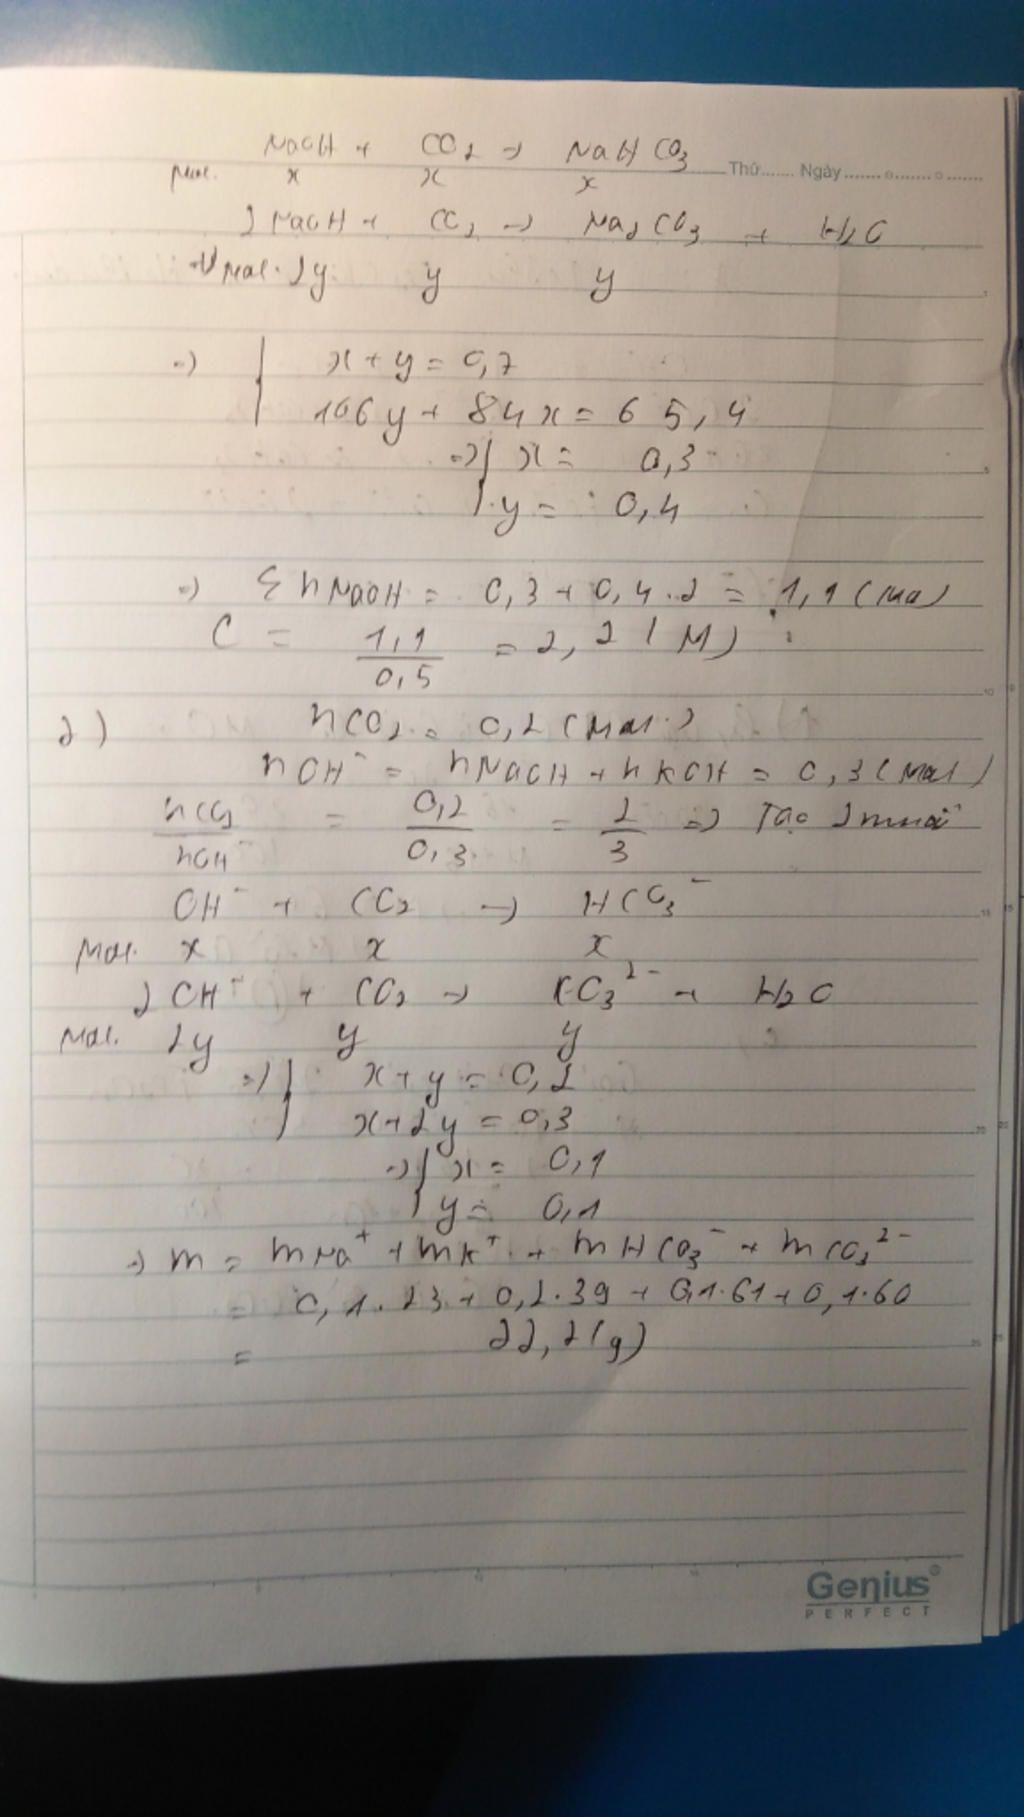 NaOH + CO2 → NaHCO3
Thứ....... Ngày.......
Mol. x x x
2NaOH + CO2 → Na2CO3 + H2O
Mol. 2y y y
=) { x + y = 0,7
106y + 84x = 65,4
=) { x = 0,3
y = 0,4
=) Σ nNaOH = 0,3 + 0,4.2 = 1,1 (mol)
C = 1,1/0,5 = 2,2 (M)
2) nCO2 = 0,2 (mol)
nOH⁻ = nNaOH + nKOH = 0,3 (mol)
nCO2/nOH⁻ = 0,2/0,3 = 2/3 =) Tạo 2 muối
OH⁻ + CO2 → HCO3⁻
Mol. x x x
2OH⁻ + CO2 → CO3²⁻ + H2O
Mol. 2y y y
=) { x + y = 0,2
x + 2y = 0,3
=) { x = 0,1
y = 0,1
=) m = mNa⁺ + mK⁺ + mHCO3⁻ + mCO3²⁻
= 0,1.23 + 0,2.39 + 0,1.61 + 0,1.60
= 22,2 (g)
Genius
PERFECT